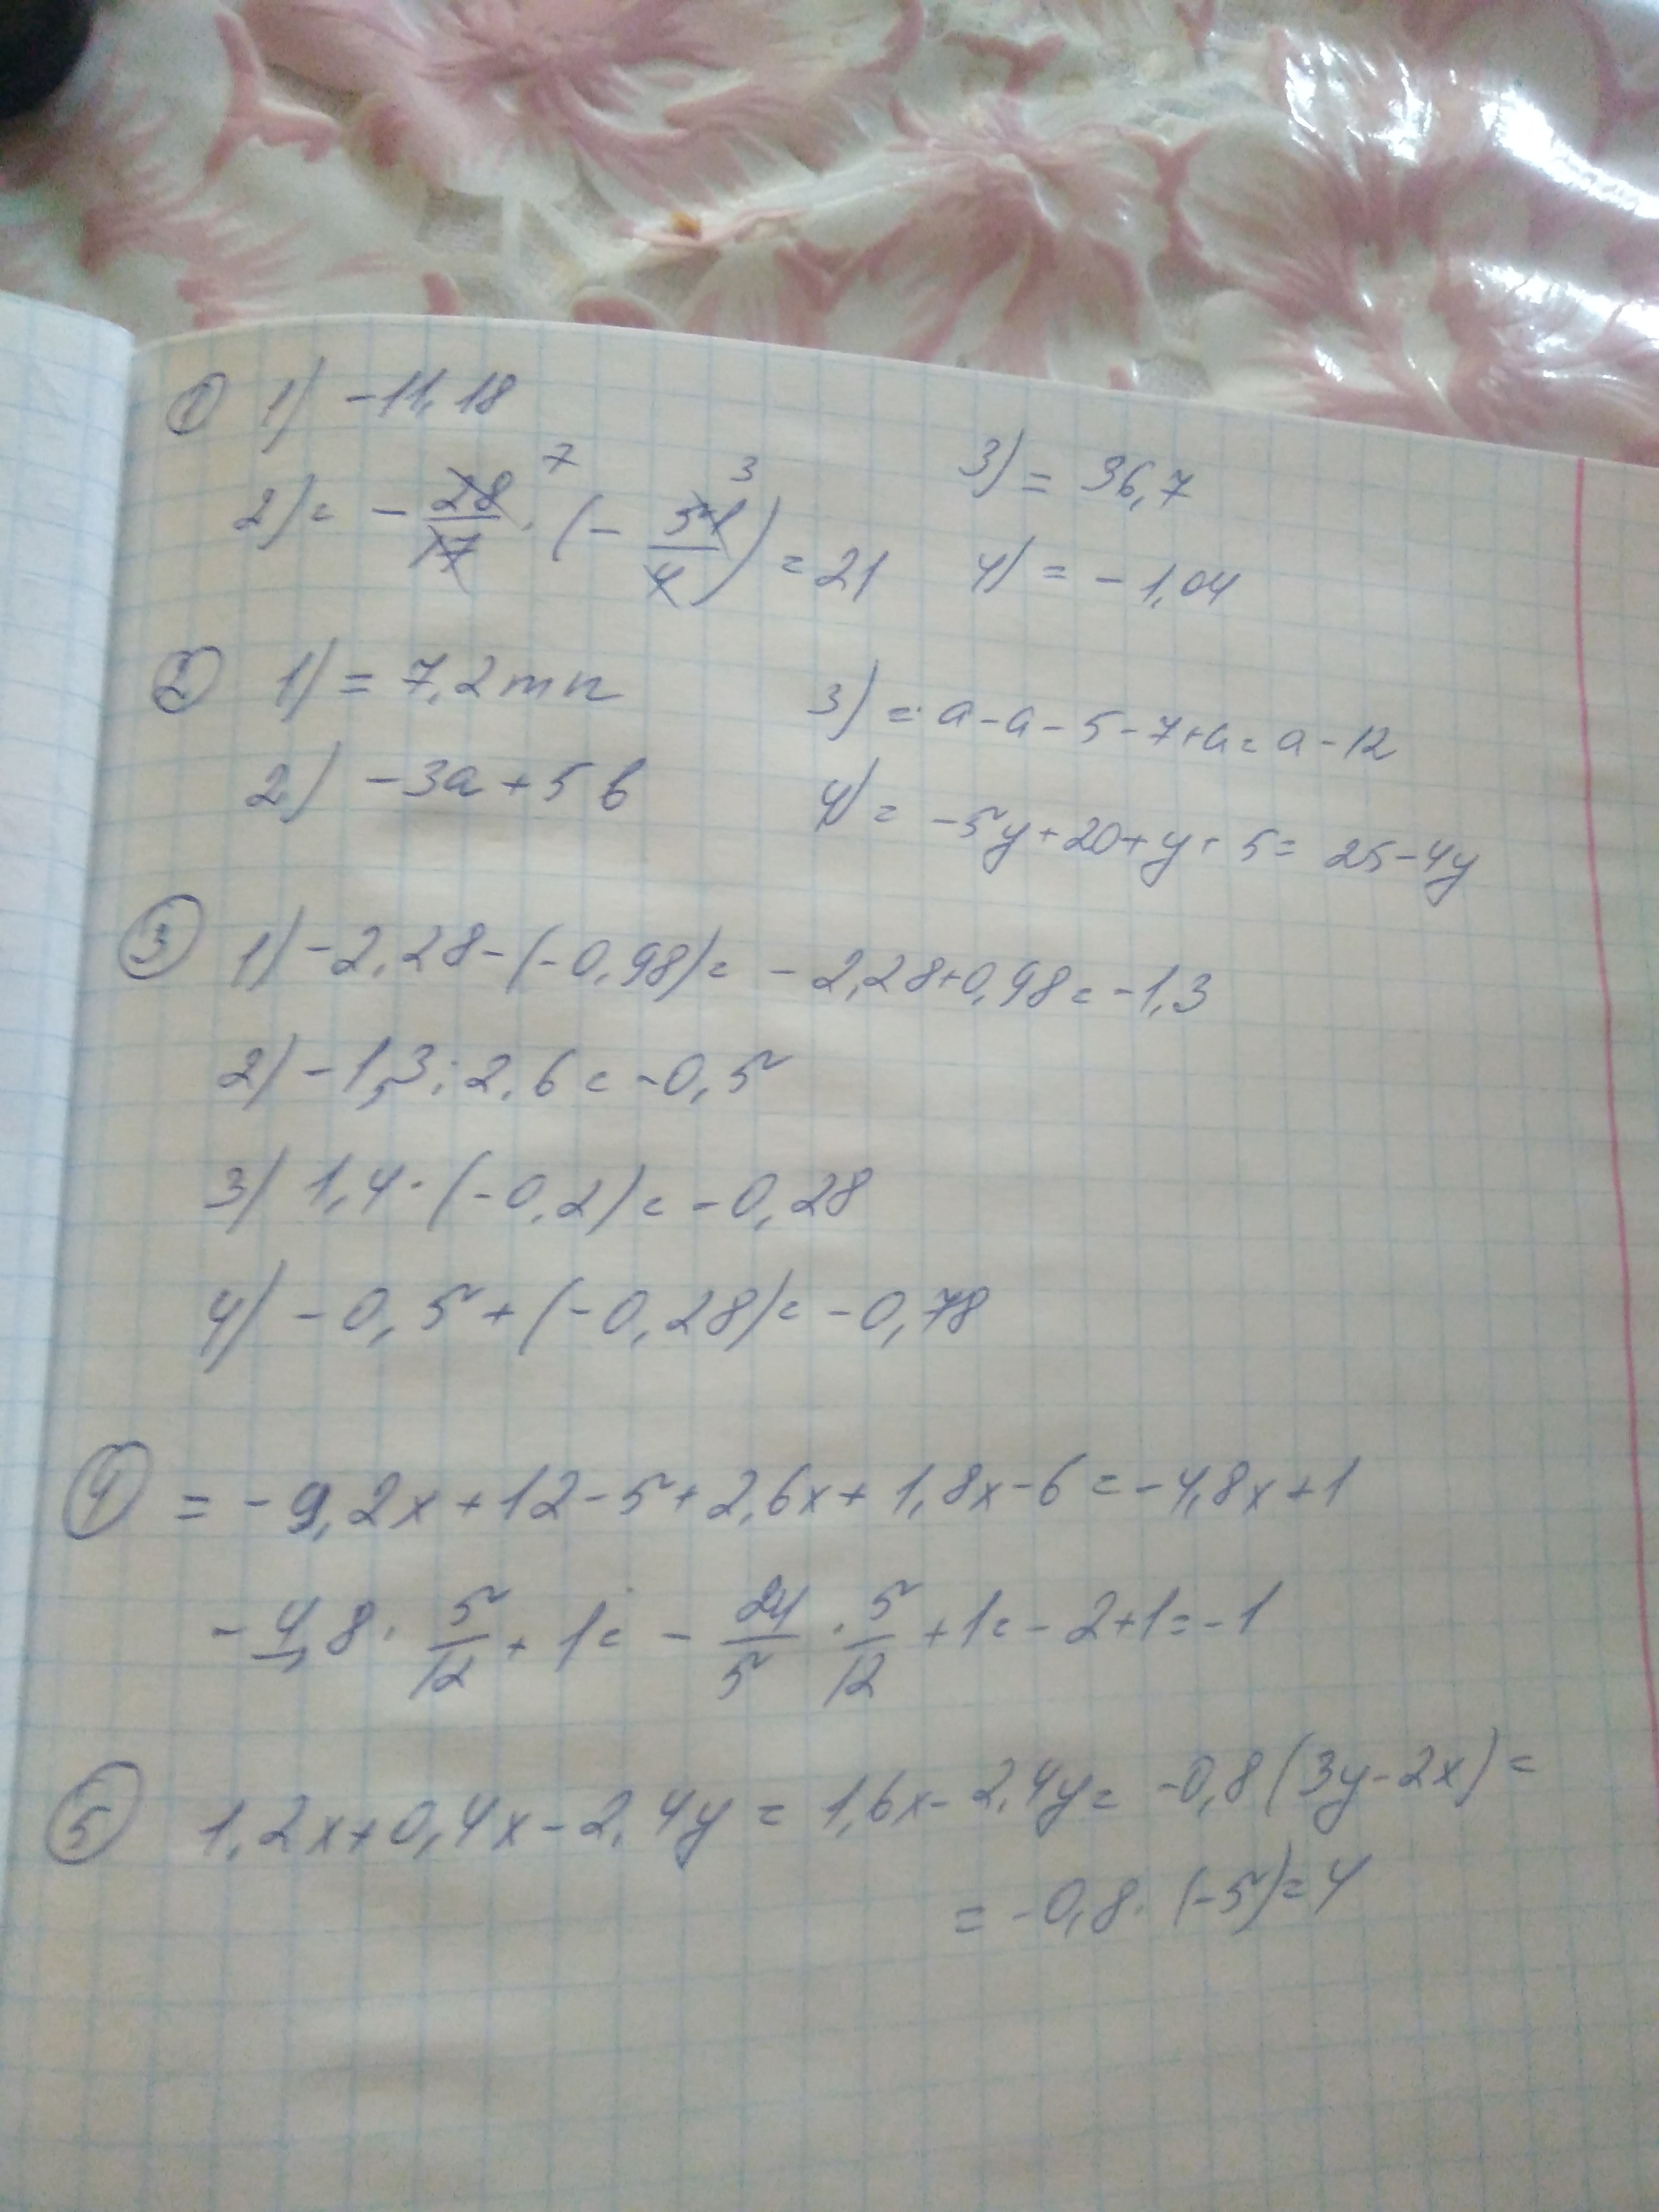 ① 1) -11,18
2) = -28/17 7 · (-51/4 3) = 21
3) = 36,7
4) = -1,04
② 1) = 7,2mn
2) -3a+5b
3) = a-a-5-7+a = a-12
4) = -5y+20+y+5 = 25-4y
③ 1) -2,28-(-0,98) = -2,28+0,98 = -1,3
2) -1,3:2,6 = -0,5
3) 1,4·(-0,2) = -0,28
4) -0,5+(-0,28) = -0,78
④ = -9,2x+12-5+2,6x+1,8x-6 = -4,8x+1
-4,8·5/12+1 = -24/5·5/12+1 = -2+1 = -1
⑤ 1,2x+0,4x-2,4y = 1,6x-2,4y = -0,8(3y-2x) =
= -0,8·(-5) = 4